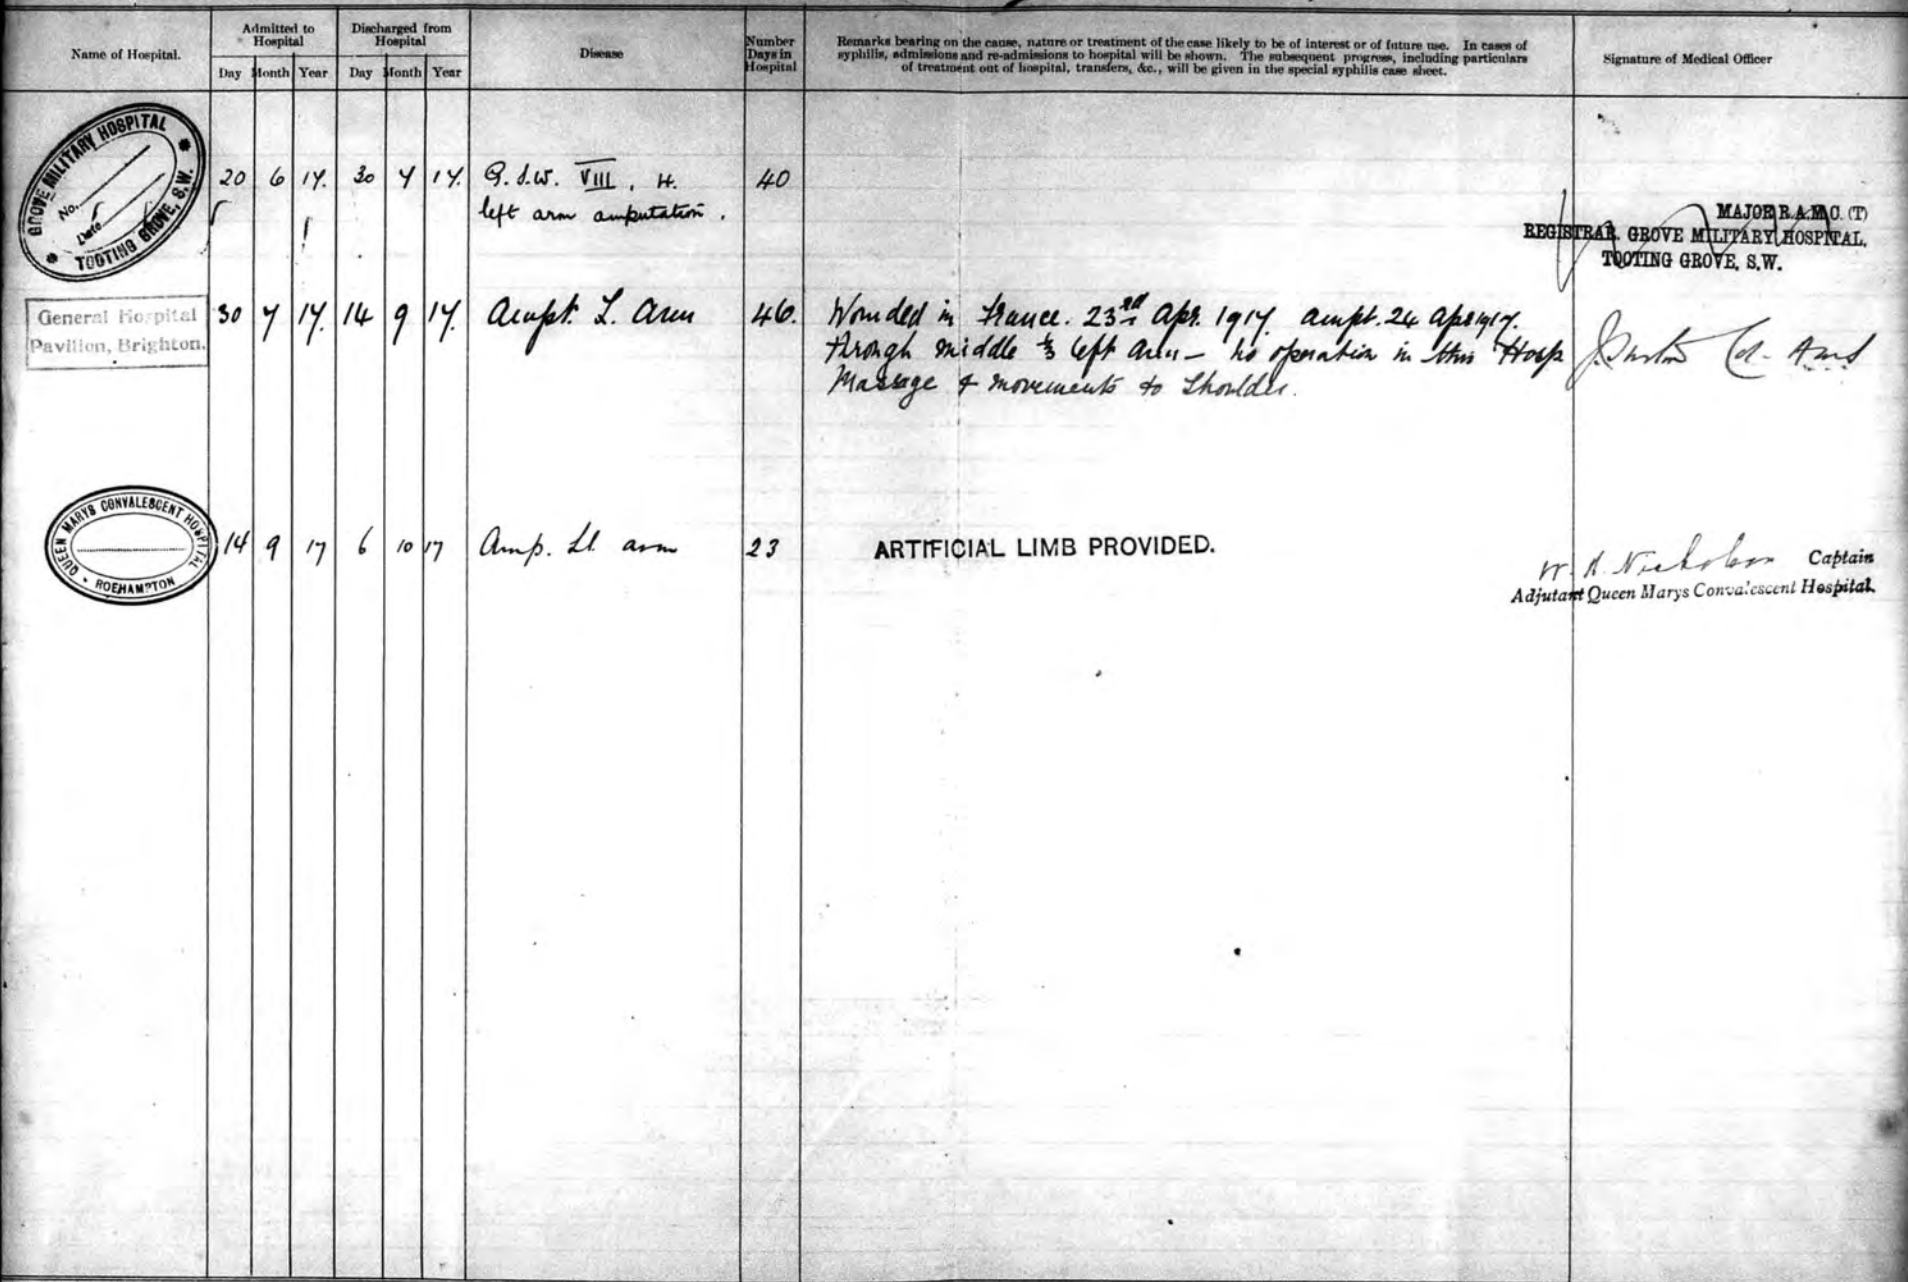 Name of Hospital.
Admitted to Hospital
Discharged from Hospital
Disease
Number Days in Hospital
Remarks bearing on the cause, nature or treatment of the case likely to be of interest or of future use. In cases of
syphilis, admissions and re-admissions to hospital will be shown. The subsequent progress, including particulars
of treatment out of hospital, transfers, &c., will be given in the special syphilis case sheet.
Signature of Medical Officer
Day Month Year Day Month Year
GROVE MILITARY HOSPITAL
No.
Date
TOOTING GROVE, S.W.
20 6 17. 30 7 17. G.S.W. VIII, H. 40
left arm amputation.
MAJOR R.A.M.C. (T)
REGISTRAR. GROVE MILITARY HOSPITAL,
TOOTING GROVE, S.W.
General Hospital
Pavilion, Brighton.
30 7 17. 14 9 17. Ampt. L. Arm 46. Wounded in France. 23rd Apr. 1917. ampt. 24 Apr 1917.
through middle ⅓ left arm – no operation in this Hosp
Massage & movements to Shoulder.
Col. AMS
QUEEN MARYS CONVALESCENT HOSPITAL
ROEHAMPTON
14 9 17 6 10 17 Amp. Lt. arm 23 ARTIFICIAL LIMB PROVIDED.
W. A. Nicholson Captain
Adjutant Queen Marys Convalescent Hospital.